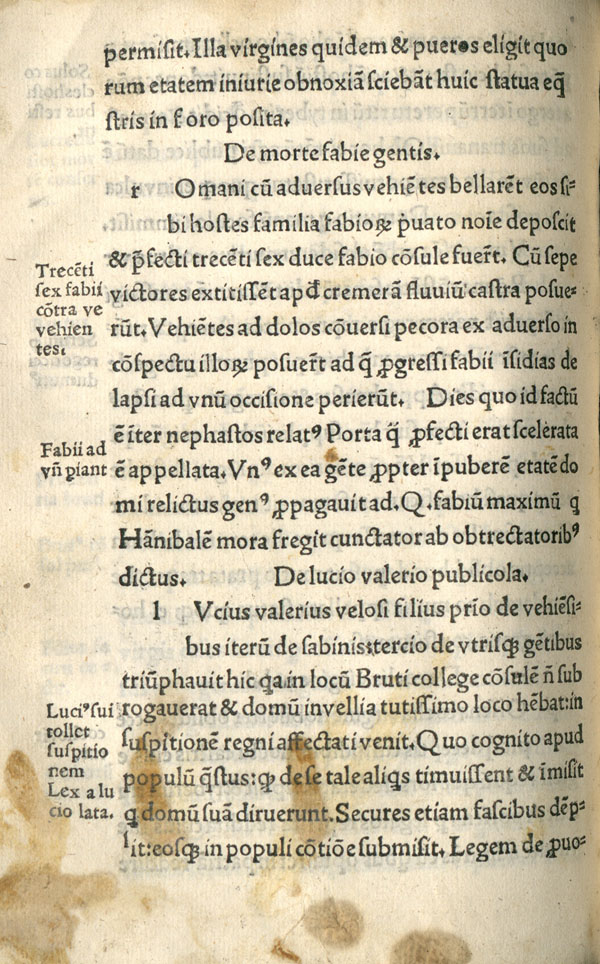 permisit. Illa virgines quidem & pueros eligit quo
rum etatem iniurie obnoxiā sciebāt huic statua eq̄
stris in foro posita.
De morte fabie gentis.
r Omani cū aduersus vehiētes bellarēt eos si-
bi hostes familia fabioꝝ p̍uato noīe deposcit
& p̄fecti trecēti sex duce fabio cōsule fuert̄. Cū sepe
victores extitissēt apd̄ cremerā fluuiū castra posue-
rūt. Vehiētes ad dolos cōuersi pecora ex aduerso in
cōspectu illoꝝ posuert̄ ad q̄ ꝓgressi fabii īsidias de
lapsi ad vnū occisione perierūt. Dies quo id factū
ē iter nephastos relatꝰ Porta q̄ ꝓfecti erat scelerata
ē appellata. Vnꝰ ex ea gēte ꝓpter īpuberē etatē do
mi relictus genꝰ ꝓpagauit ad. Q. fabiū maximū q
Hānibalē mora fregit cunctator ab obtrectatoribꝰ
dictus. De lucio valerio publicola.
l Vcius valerius velosi filius prīo de vehiēsi-
bus iterū de sabinis: tercio de vtrisqꝫ gētibus
triūphauit hic qa in locū Bruti college cōsulē n̄ sub
rogauerat & domū in vellia tutissimo loco hēbat: in
suspitionē regni affectati venit. Quo cognito apud
populū q̄stus: qꝫ de se tale aliqs timuissent & īmisit
q domū suā diruerunt. Secures etiam fascibus dēp-
sit: eosqꝫ in populi cōtiōe submisit. Legem de ꝓuo-
Trecēti
sex fabii
cōtra ve
vehien
tes.
Fabii ad
vn̄ piant
Luciꝰ sui
tollet
suspitio
nem
Lex a lu
cio lata.